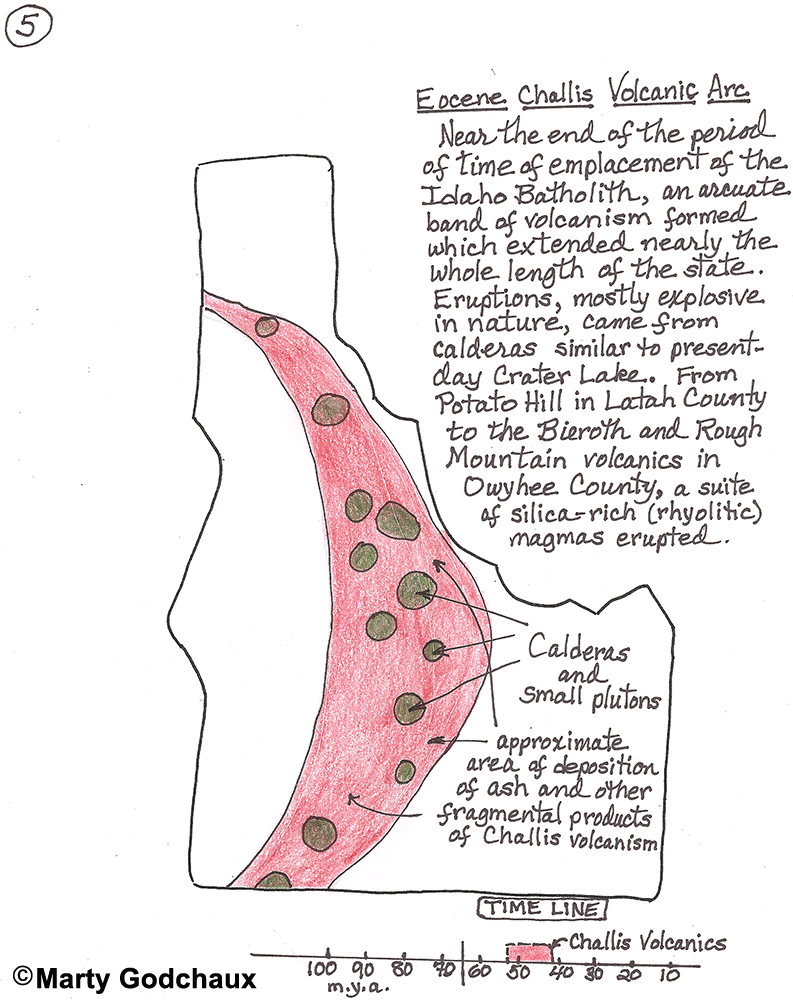 5
Eocene Challis Volcanic Arc
Near the end of the period
of time of emplacement of the
Idaho Batholith, an arcuate
band of volcanism formed
which extended nearly the
whole length of the state.
Eruptions, mostly explosive
in nature, came from
calderas similar to present-
day Crater Lake. From
Potato Hill in Latah County
to the Bieroth and Rough
Mountain volcanics in
Owyhee County, a suite
of silica-rich (rhyolitic)
magmas erupted.
Calderas
and
small plutons
approximate
area of deposition
of ash and other
fragmental products
of Challis volcanism
TIME LINE
Challis Volcanics
100 90 80 70 60 50 40 30 20 10
m.y.a.
©Marty Godchaux